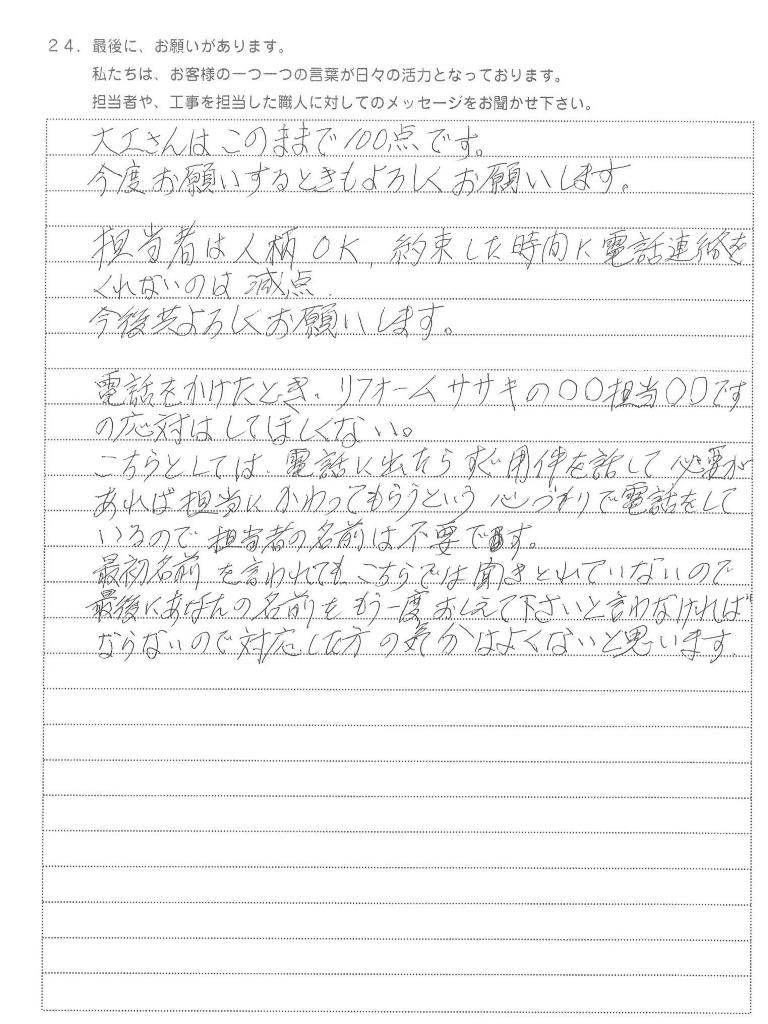 24. 最後に、お願いがあります。
私たちは、お客様の一つ一つの言葉が日々の活力となっております。
担当者や、工事を担当した職人に対してのメッセージをお聞かせ下さい。
大工さんはこのままで100点です。
今度お願いするときもよろしくお願いします。
担当者は人柄OK、約束した時間に電話連絡を
くれないのは減点
今後共よろしくお願いします。
電話をかけたとき、リフォームササキの〇〇担当〇〇です
の応対はしてほしくない。
こちらとしては、電話に出たらすぐ用件を話して必要が
あれば担当にかわってもらうという心づもりで電話をして
いるので担当者の名前は不要です。
最初名前を言われてもこちらでは聞きとれていないので
最後にあなたの名前をもう一度おしえて下さいと言わなければ
ならないので対応した方の気分はよくないと思います。